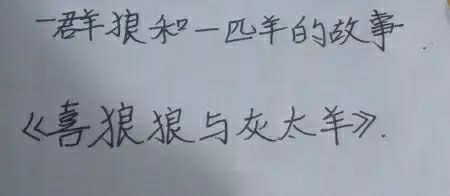 一群狼和一匹羊的故事.
《喜狼狼与灰太羊》.